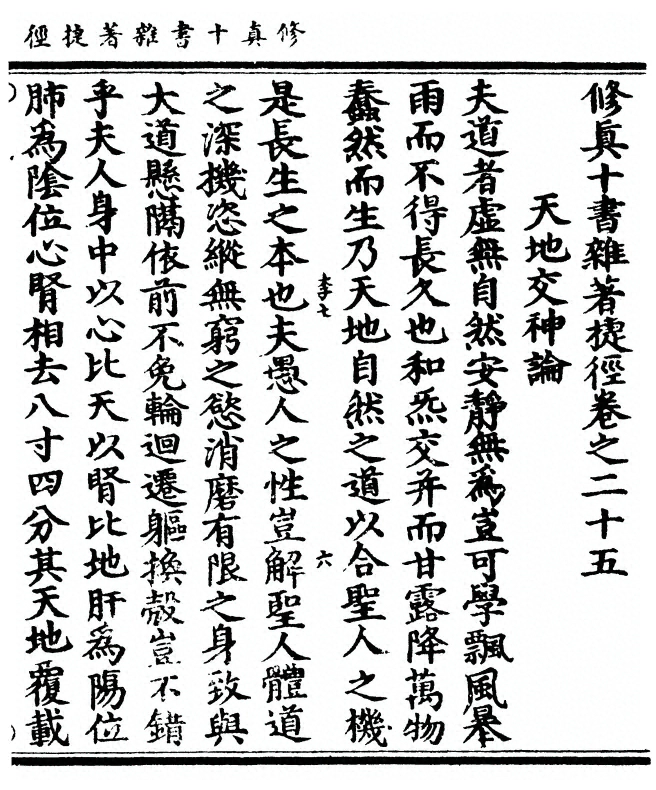 修真十書雜著捷徑
修真十書雜著捷徑卷之二十五
天地交神論
夫道者虛無自然安靜無為豈可學飄風暴
雨而不得長久也和炁交并而甘露降萬物
蠢然而生乃天地自然之道以合聖人之機
李七
六
是長生之本也夫愚人之性豈解聖人體道
之深機恣縱無窮之慾消磨有限之身致與
大道懸隔依前不免輪迴遷軀換殼豈不錯
乎夫人身中以心比天以腎比地肝為陽位
肺為陰位心腎相去八寸四分其天地覆載